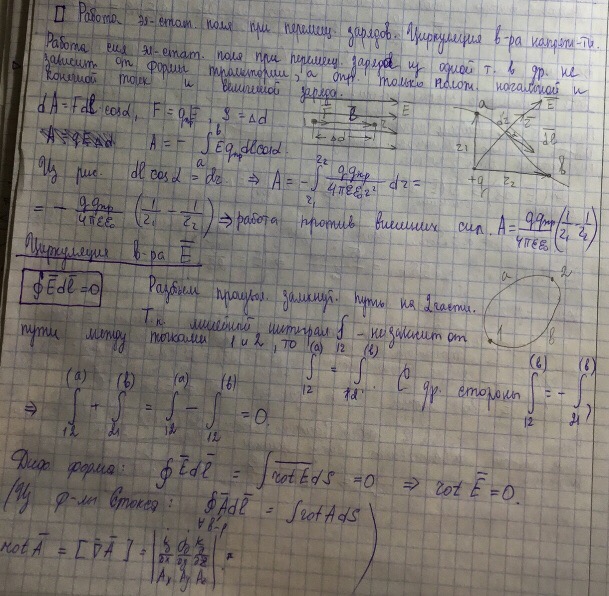 Работа эл-стат. поля при перемещ. зарядов. Циркуляция в-ра напряж-ти.
Работа сил эл-стат. поля при перемещ. зарядов из одной т. в др. не
зависит от формы траектории, а опр. только полож. начальной и
конечной точек и величиной заряда.
dA = Fdl·cosα, F = qпрE, S = Δd
A = - ∫ₐᵇ E qпр dl cosα.
Из рис. dl cosα = dr. ⇒ A = - ∫ qqпр/4πεε₀r² dr =
= - qqпр/4πεε₀ (1/r₁ - 1/r₂) ⇒ работа против внешних сил. A = qqпр/4πεε₀ (1/r₁ - 1/r₂)
Циркуляция в-ра E̅
∮E̅dl̅ = 0 Разбьем произвол. замкнут. путь на 2 части.
Т.к. линейный интеграл ∫ - не зависит от
пути между точками 1 и 2, то ∫₁₂⁽ᵃ⁾ = ∫₁₂⁽ᵇ⁾. С др. стороны ∫₁₂⁽ᵇ⁾ = - ∫₂₁⁽ᵇ⁾,
⇒ ∫₁₂⁽ᵃ⁾ + ∫₂₁⁽ᵇ⁾ = ∫₁₂⁽ᵃ⁾ - ∫₁₂⁽ᵇ⁾ = 0.
Диф форма: ∮E̅dl̅ = ∫rotE dS = 0 ⇒ rot E̅ = 0.
(Из ф-лы Стокса: ∮A̅dl̅ = ∫rotAdS)
rotA̅ = [∇̅A̅] =